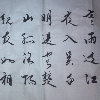 寒雨連江
夜入吳平
明送客楚
山孤洛陽
親友如相